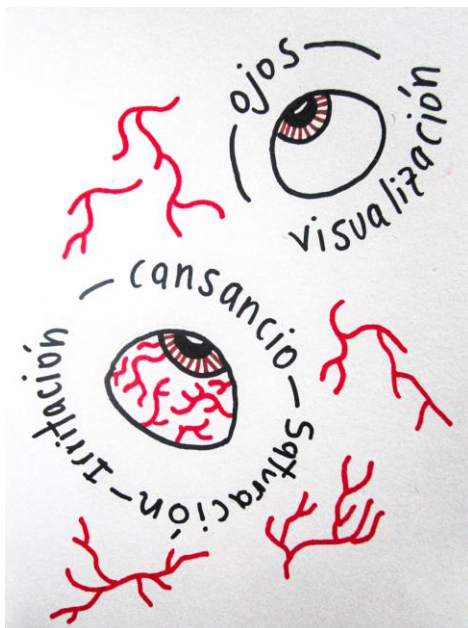 ojos
visualización
cansancio – Saturación – Irritación